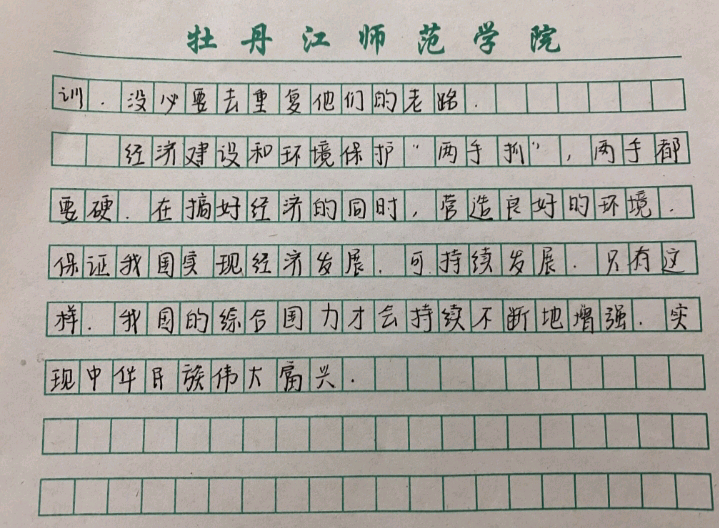 牡丹江师范学院
训.没必要去重复他们的老路.
经济建设和环境保护“两手抓”,两手都
要硬.在搞好经济的同时,营造良好的环境.
保证我国实现经济发展.可持续发展.只有这
样.我国的综合国力才会持续不断地增强.实
现中华民族伟大富兴.